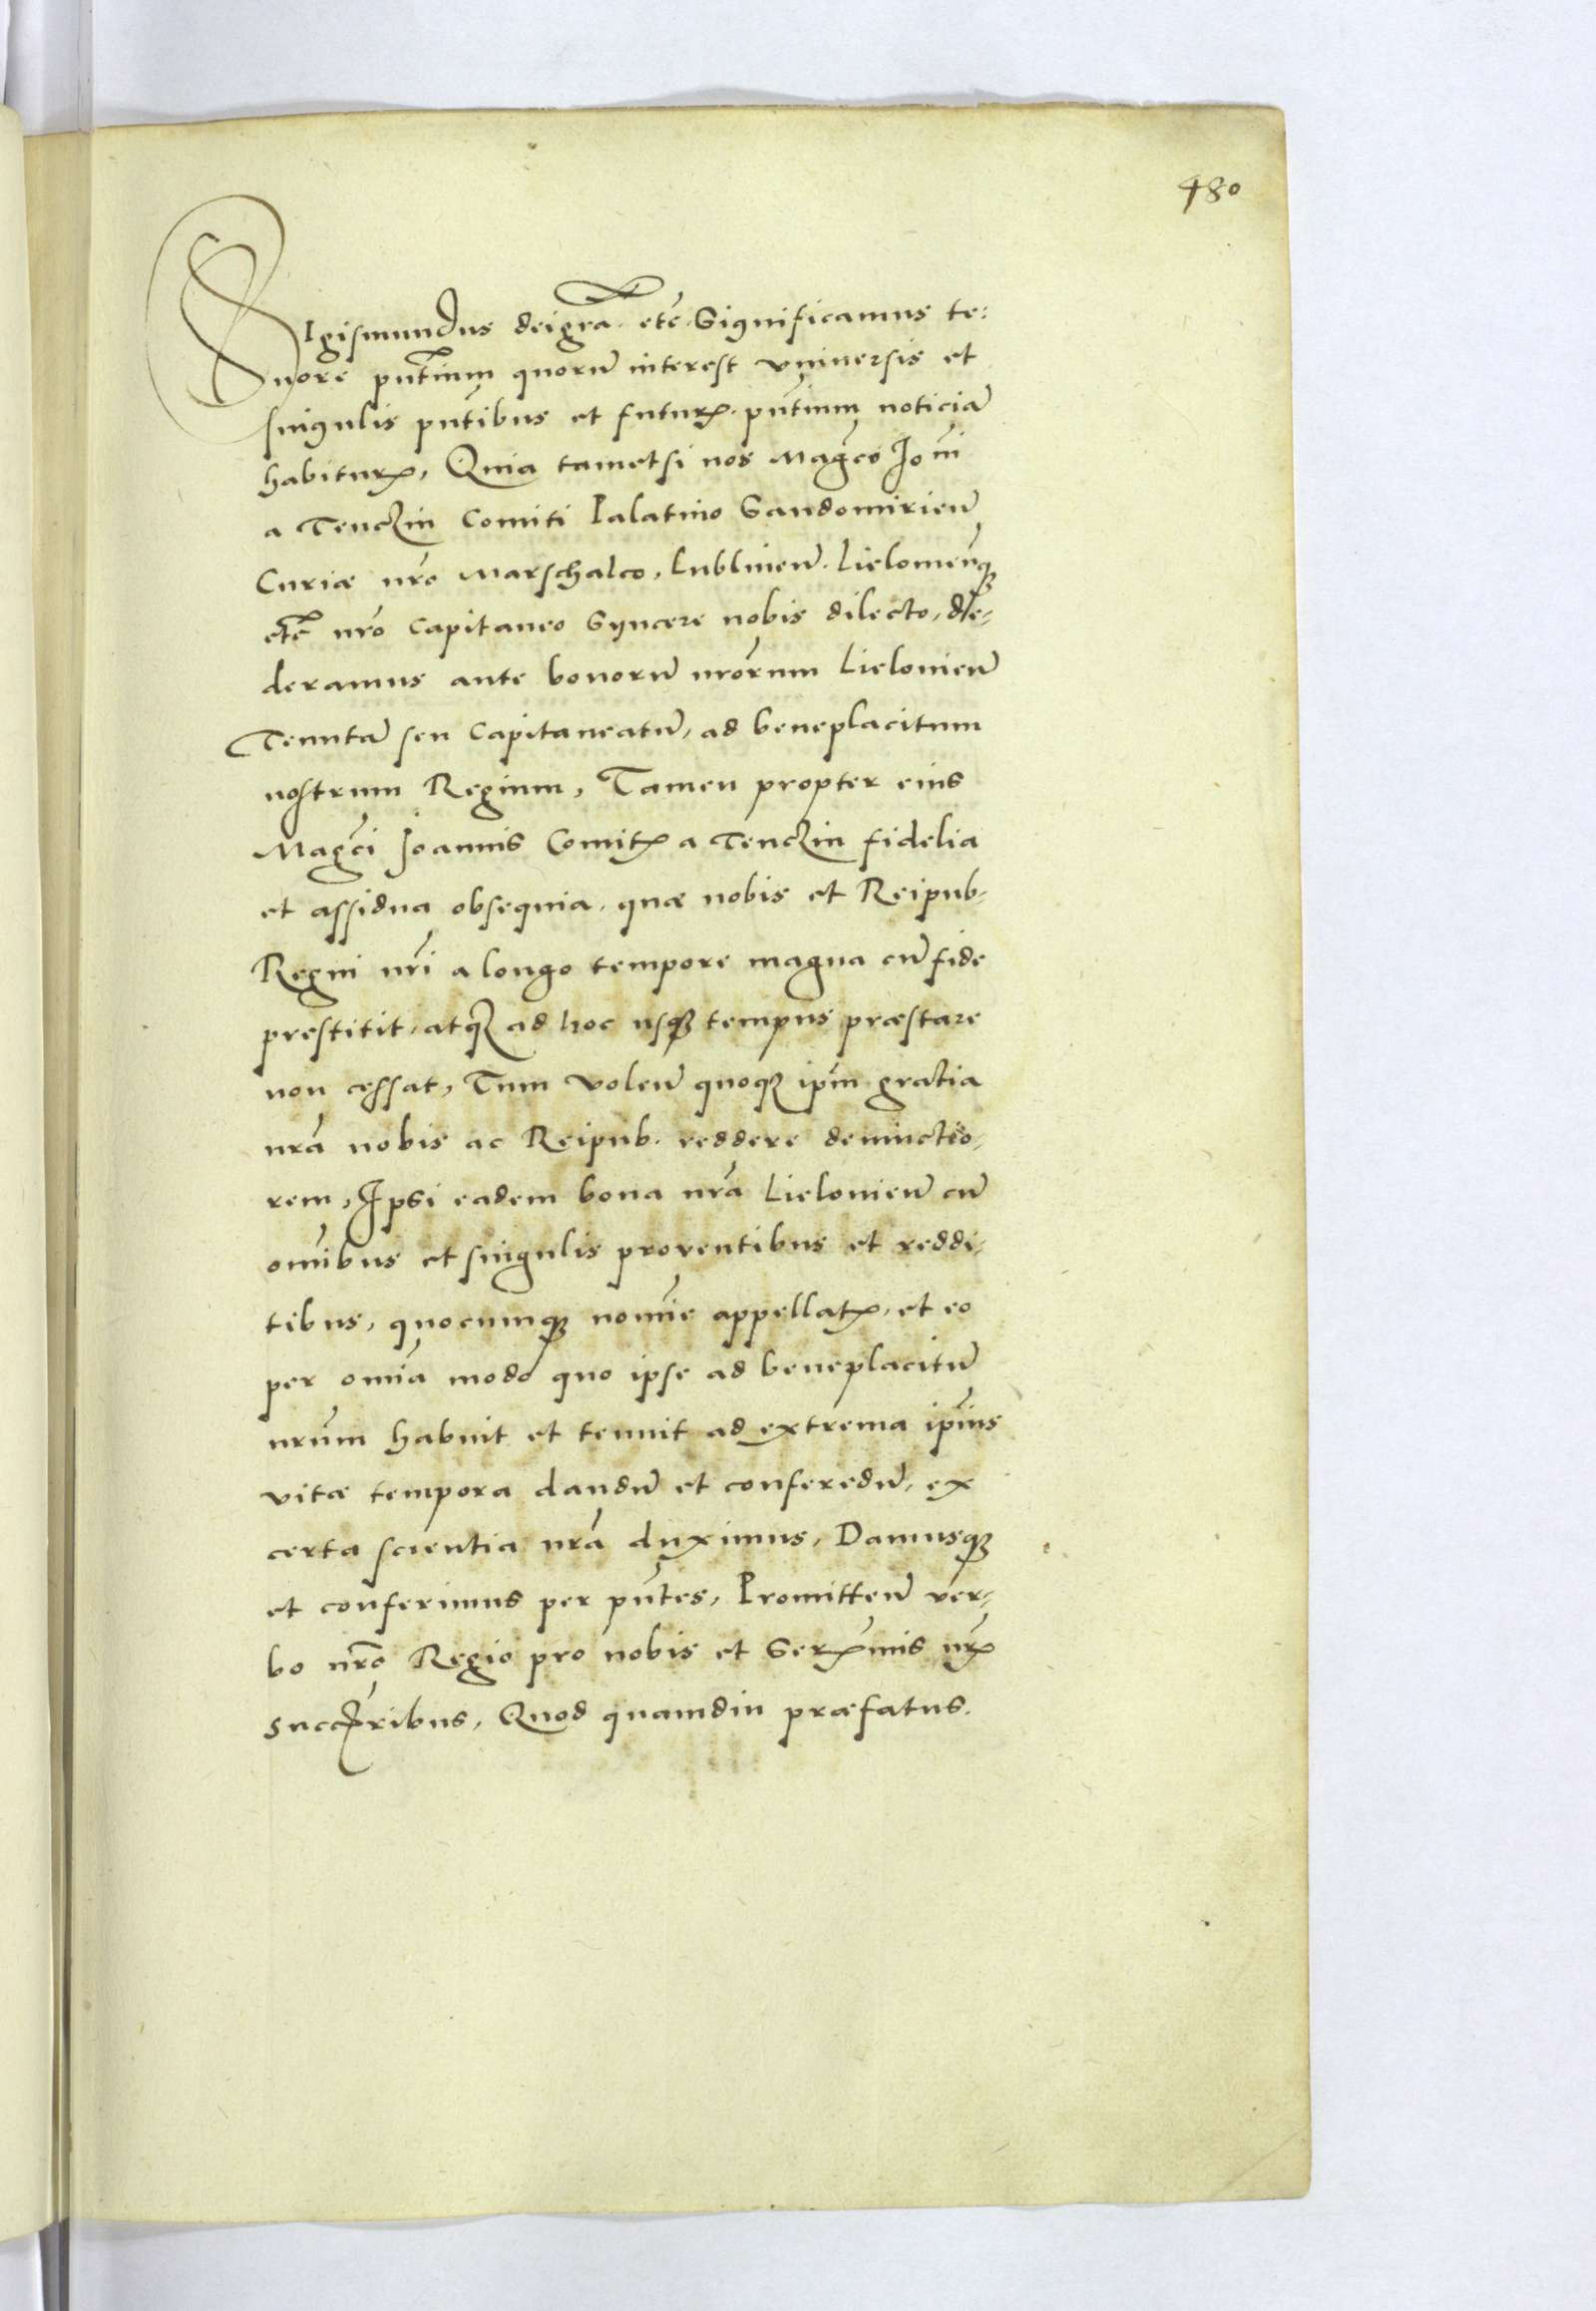 480
SIgismundus dei gra. etc̃. Significamus te:
nore pñtium quorũ interest vniuersis et
singulis pñtibus et futurꝭ. pñtium noticiã
habiturꝭ, Quia tametsi nos Magco Ioñi
a Tenczin Comiti Palatino Sandomirieñ
Curiæ nr̃o Marschalco, Lublineñ. Lieloneñqꝫ
etc̃ nr̃o Capitaneo Syncere nobis dilecto, de-
deramus ante bonorũ nr̃orum Lielonieñ
Tenutã seu Capitaneatũ, ad beneplacitum
nostrum Regium, Tamen propter eius
Magci Ioannis Comitꝭ a Tenczin fidelia
et assidua obsequia, quæ nobis et Reipub.
Regni nr̃i a longo tempore magna cũ fide
prestitit, atqꝫ ad hoc usqꝫ tempus præstare
non cessat, Tum voleñ quoqꝫ ipm̃ gratia
nr̃a nobis ac Reipub. reddere deuinctio-
rem, Ipsi eadem bona nr̃a Lielonieñ cũ
omĩbus et singulis prouentibus et reddi-
tibus, quocumqꝫ nomĩe appellatꝭ, et eo
per omĩa modo quo ipse ad beneplacitũ
nr̃um habuit et tenuit ad extrema ipĩus
vitæ tempora dandũ et conferedũ, ex
certa scientia nr̃a duximus, Damusqꝫ
et conferimus per pñtes, Promitteñ ver-
bo nr̃o Regio pro nobis et Serꝭmis nrꝭ
Succꝭribus, Quod quamdiu præfatus.